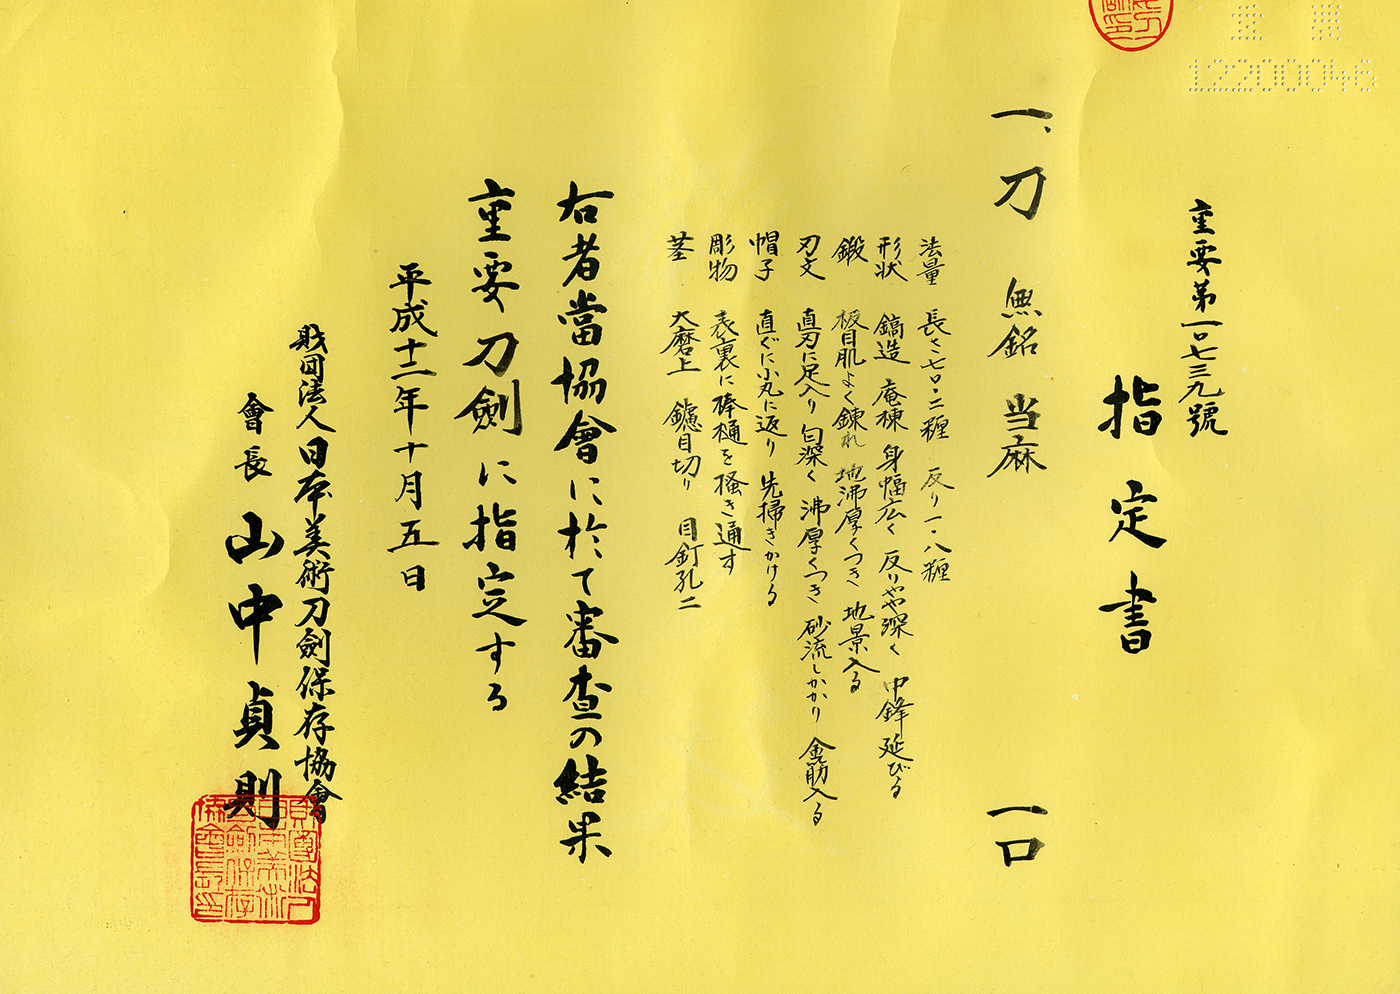 12200046
重要第一〇七三九號
指定書
一、刀 無銘 当麻 一口
法量 長さ七〇・二糎 反り一・八糎
形状 鎬造 庵棟 身幅広く 反りやや深く 中鋒延びる
鍛 板目肌よく錬れ 地沸厚くつき 地景入る
刃文 直刃に足入り 匂深く 沸厚くつき 砂流しかかり 金筋入る
帽子 直ぐに小丸に返り 先掃きかける
彫物 表裏に棒樋を掻き通す
茎 大磨上 鑢目切り 目釘孔二
右者當協會に於て審査の結果
重要刀劍に指定する
平成十二年十月五日
財団法人日本美術刀劍保存協會
會長 山中貞則